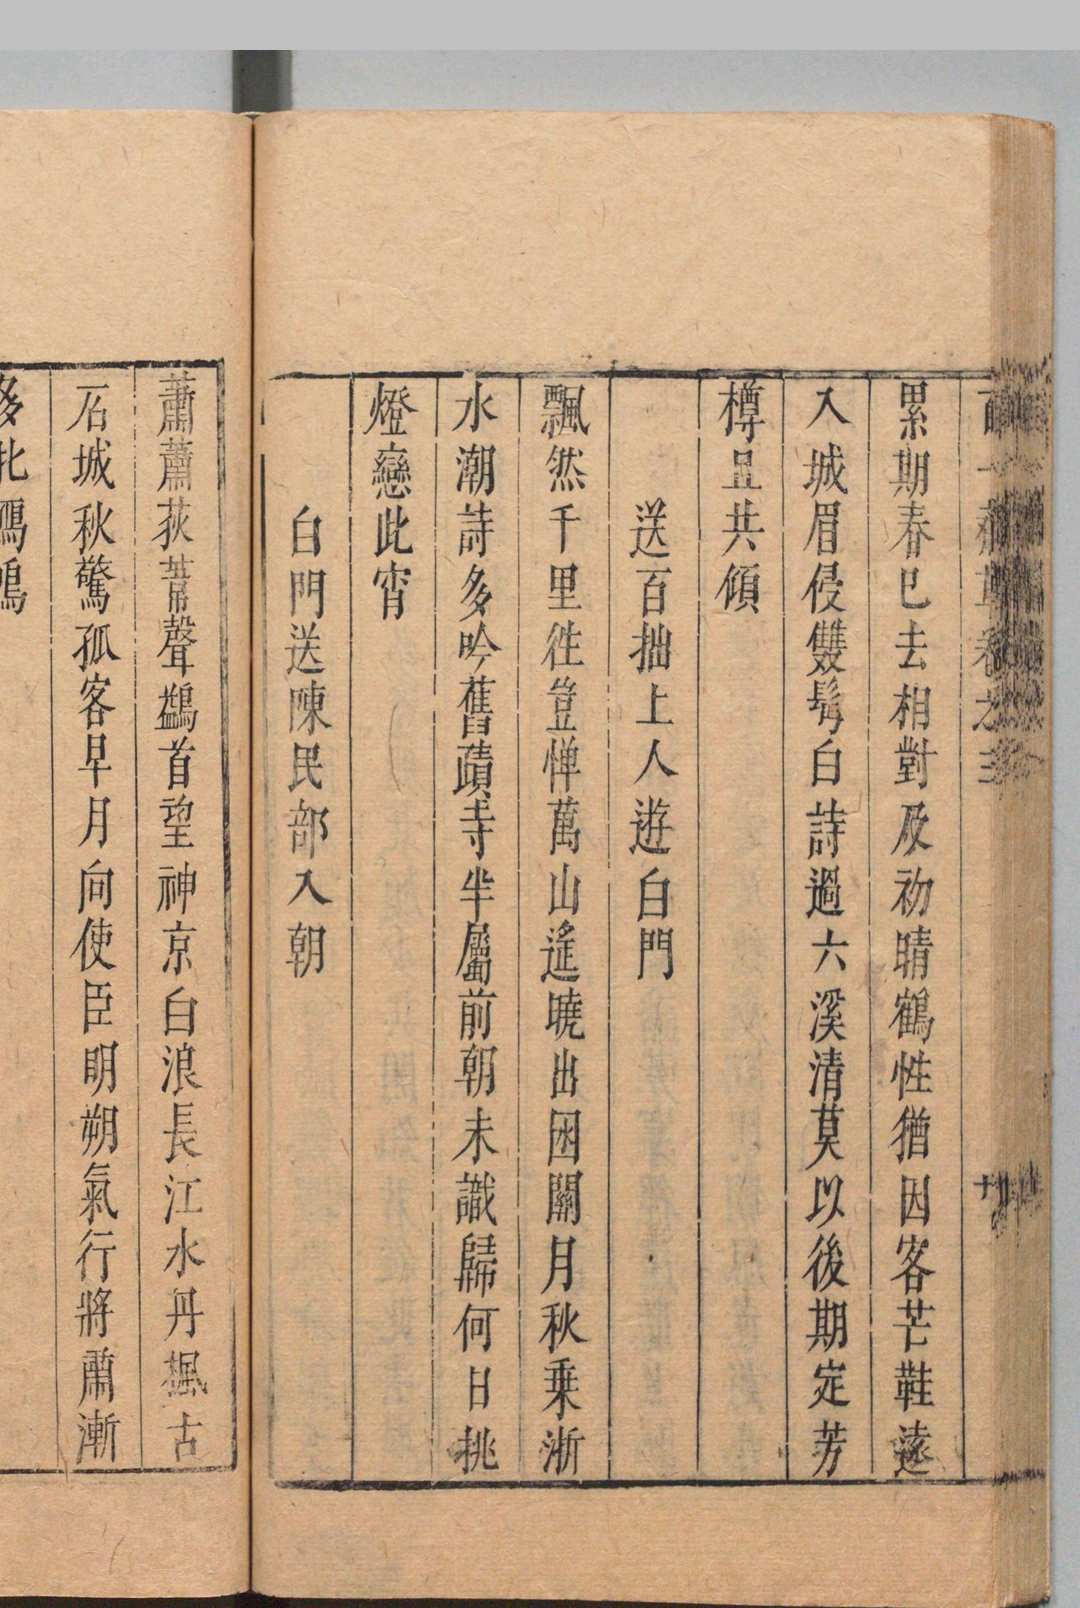 累期春已去相對及初晴鶴性猶因客芒鞋遠
入城眉侵雙鬂白詩過六溪清莫以後期定芳
樽且共傾
送百拙上人遊白門
飄然千里徃豈憚萬山遙曉出困關月秋乗淅
水潮詩多吟舊蹟寺半屬前朝未識歸何日挑
燈戀此宵
白門送陳民部入朝
蕭蕭荻葦聲鷁首望神京白浪長江水丹楓古
石城秋驚孤客早月向使臣明朔氣行將肅漸